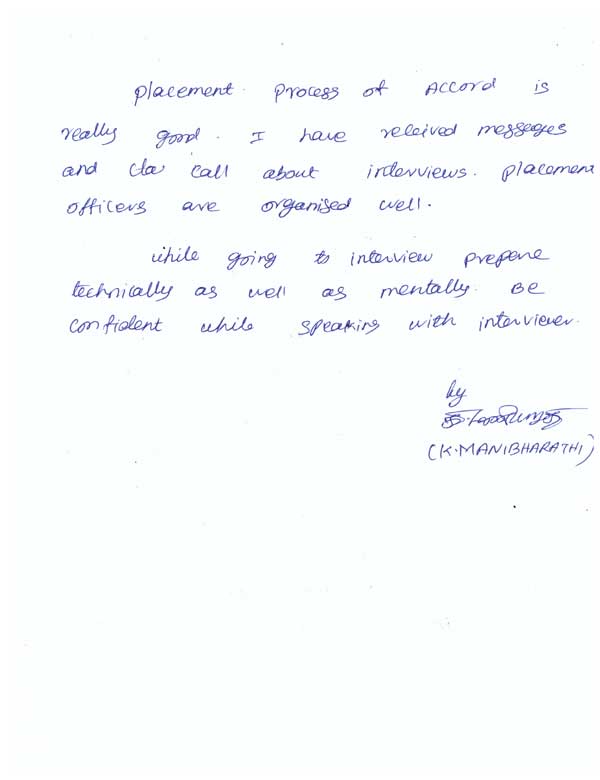 placement process of Accord is
really good. I have received messeges
and call about interviews. placement
officers are organised well.
while going to interview prepare
technically as well as mentally. Be
confident while speaking with interviewer.
by
(K.MANIBHARATHI)